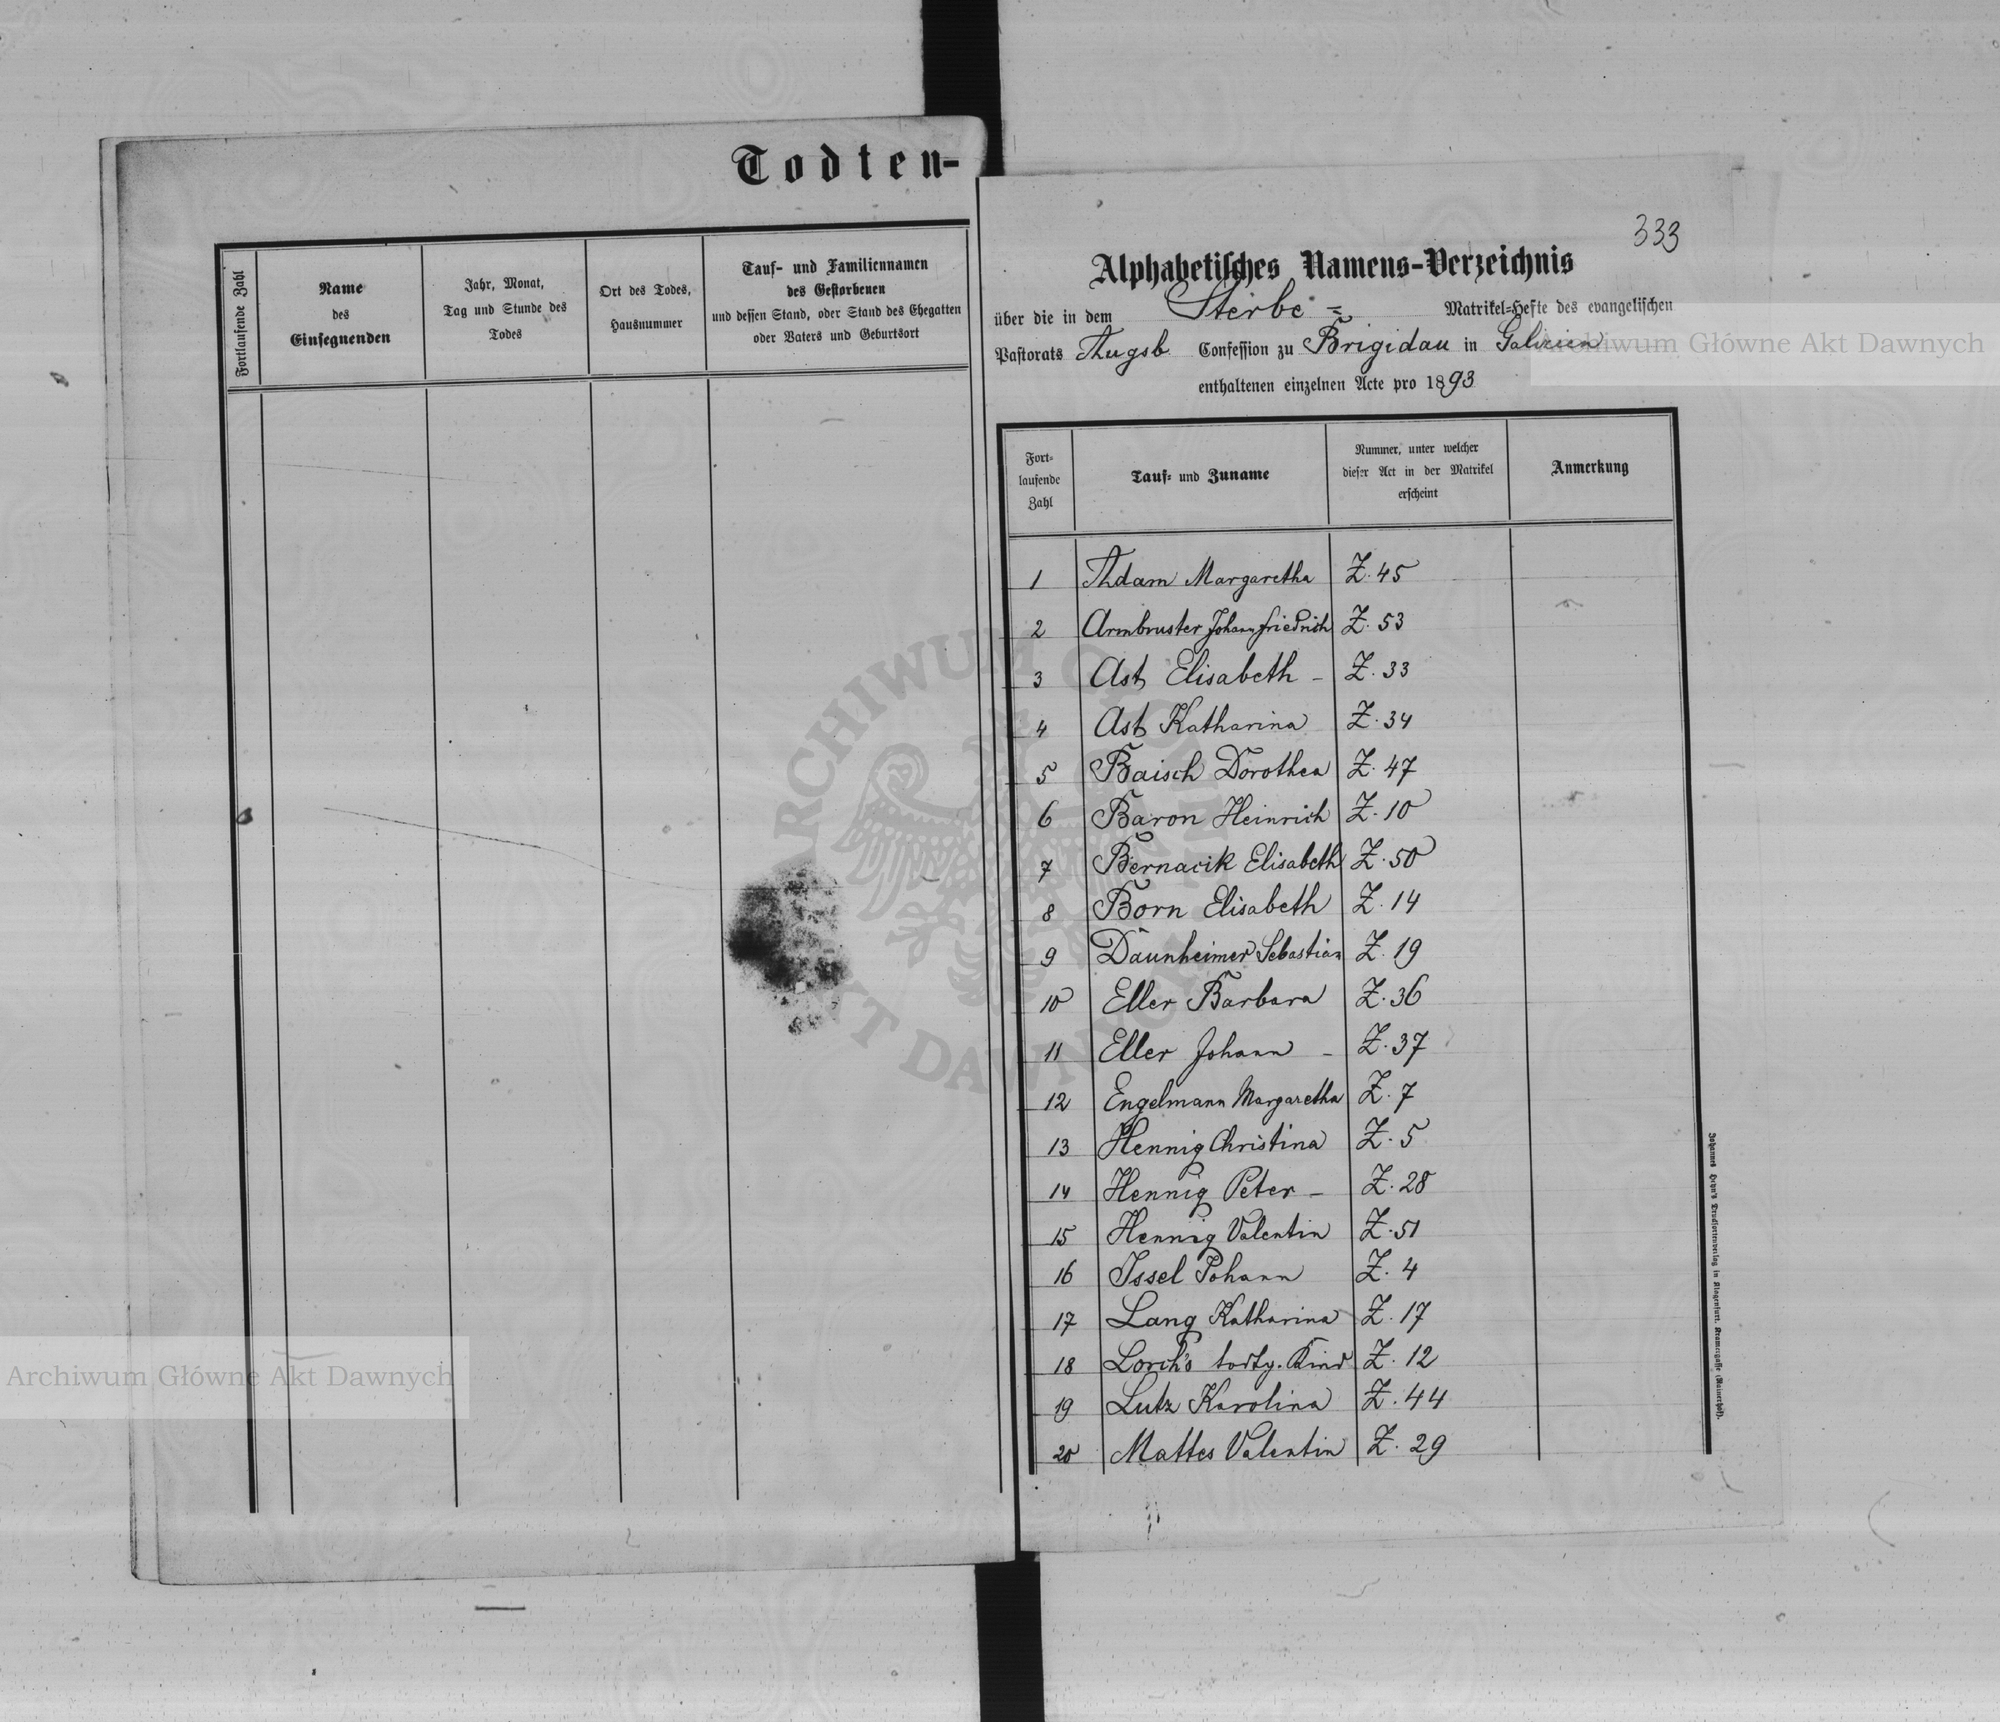 Todten-
Fortlaufende Zahl
Name
des
Einsegnenden
Jahr, Monat,
Tag und Stunde des
Todes
Ort des Todes,
Hausnummer
Tauf- und Familiennamen
des Gestorbenen
und dessen Stand, oder Stand des Ehegatten
oder Vaters und Geburtsort
333
Alphabetisches Namens-Verzeichnis
über die in dem Sterbe = Matrikel-Hefte des evangelischen
Pastorats Augsb. Confession zu Brigidau in Galizien
enthaltenen einzelnen Acte pro 1893
Fort-
laufende
Zahl
Tauf- und Zuname
Nummer, unter welcher
dieser Act in der Matrikel
erscheint
Anmerkung
1 Adam Margaretha Z. 45
2 Armbruster Johann Friedrich Z. 53
3 Ast Elisabeth - Z. 33
4 Ast Katharina Z. 34
5 Baisch Dorothea Z. 47
6 Baron Heinrich Z. 10
7 Bernacik Elisabeth Z. 50
8 Born Elisabeth Z. 14
9 Daunheimer Sebastian Z. 19
10 Eller Barbara Z. 36
11 Eller Johann - Z. 37
12 Engelmann Margaretha Z. 7
13 Hennig Christina Z. 5
14 Hennig Peter - Z. 28
15 Hennig Valentin Z. 51
16 Issel Johann Z. 4
17 Lang Katharina Z. 17
18 Lorch's todtg. Kind Z. 12
19 Lutz Karolina Z. 44
20 Mattes Valentin Z. 29
Johannes Heyn's Drucksortenverlag in Klagenfurt, Kramergasse (Rainerhof).
Archiwum Główne Akt Dawnych
Archiwum Główne Akt Dawnych
ARCHIWUM GŁÓWNE AKT DAWNYCH